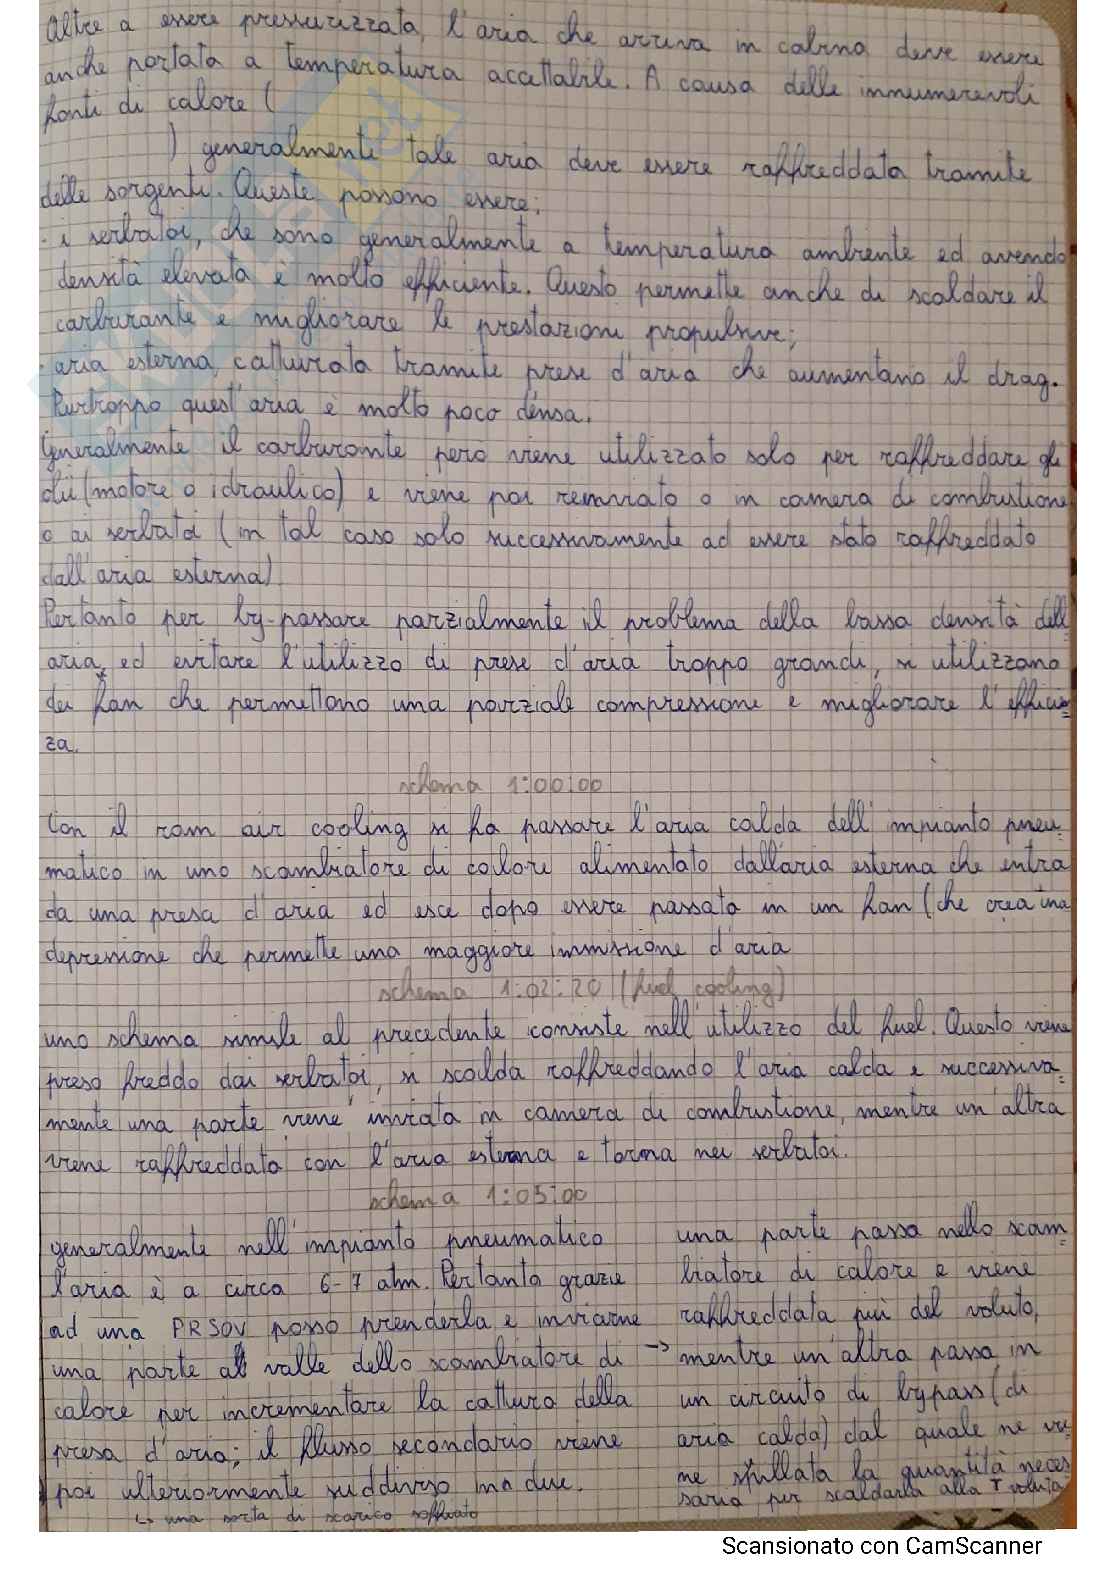 Oltre a essere pressurizzata, l'aria che arriva in cabina deve essere
anche portata a temperatura accettabile. A causa delle innumerevoli
fonti di calore (
) generalmente tale aria deve essere raffreddata tramite
delle sorgenti. Queste possono essere:
· i serbatoi, che sono generalmente a temperatura ambiente ed avendo
densità elevata è molto efficiente. Questo permette anche di scaldare il
carburante e migliorare le prestazioni propulsive;
· aria esterna, catturata tramite prese d'aria che aumentano il drag.
Purtroppo quest'aria è molto poco densa.
Generalmente il carburante però viene utilizzato solo per raffreddare gli
olii (motore o idraulico) e viene poi reinviato o in camera di combustione
o ai serbatoi (in tal caso solo successivamente ad essere stato raffreddato
dall'aria esterna)
Pertanto per by-passare parzialmente il problema della bassa densità dell'
aria, ed evitare l'utilizzo di prese d'aria troppo grandi, si utilizzano
dei fan che permettono una parziale compressione e migliorare l'efficien=
za.
schema 1:00:00
Con il ram air cooling si fa passare l'aria calda dell'impianto pneu=
matico in uno scambiatore di calore alimentato dall'aria esterna che entra
da una presa d'aria ed esce dopo essere passata in un fan (che crea una
depressione che permette una maggiore immissione d'aria
schema 1:02:20 (fuel cooling)
uno schema simile al precedente consiste nell'utilizzo del fuel. Questo viene
preso freddo dai serbatoi, si scalda raffreddando l'aria calda e successiva=
mente una parte viene inviata in camera di combustione, mentre un'altra
viene raffreddata con l'aria esterna e torna nei serbatoi.
schema 1:05:00
generalmente nell'impianto pneumatico
l'aria è a circa 6-7 atm. Pertanto grazie
ad una PRSOV posso prenderla e inviarne
una parte a valle dello scambiatore di ->
calore per incrementare la cattura della
presa d'aria; il flusso secondario viene
poi ulteriormente suddiviso in a due.
↳ una sorta di scarico soffiato
una parte passa nello scam=
biatore di calore e viene
raffreddata più del voluto,
mentre un'altra passa in
un circuito di bypass (di
aria calda) dal quale ne vie=
ne spillata la quantità neces
saria per scaldarla alla T voluta
Scansionato con CamScanner